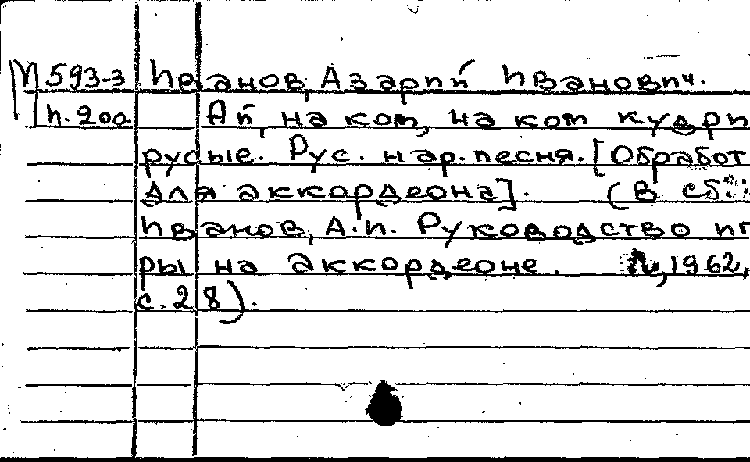 М 593-3 Иванов, Азарий Иванович.
И.200 Ай, на ком, на ком кудри
русые. Рус. нар. песня. [Обработ
для аккордеона]. (В сб.:
Иванов, А.И. Руководство иг
ры на аккордеоне. 1962,
с.28).